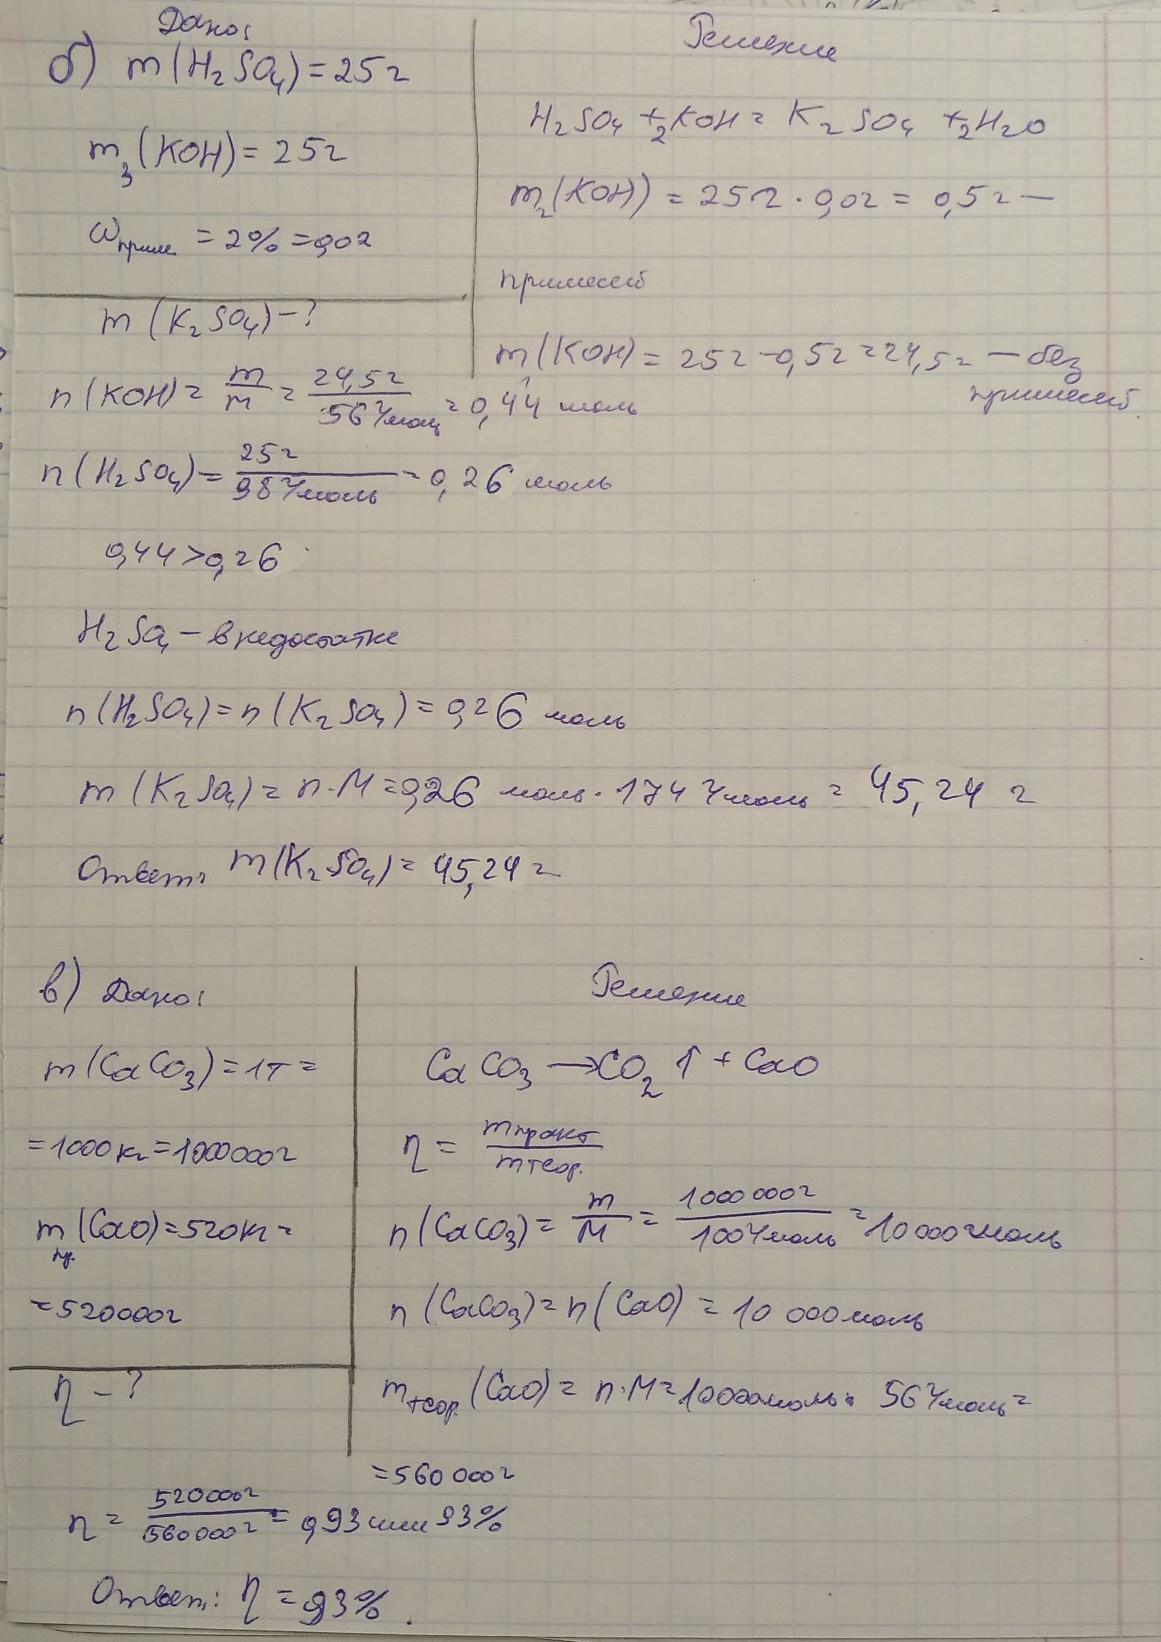 Дано:
б) m(H₂SO₄) = 25г
m₃(KOH) = 25г
ω прим = 2% = 0,02
m(K₂SO₄) - ?
Решение
H₂SO₄ + 2KOH = K₂SO₄ + 2H₂O
m₂(KOH) = 25г · 0,02 = 0,5г —
примесей
m₁(KOH) = 25г - 0,5г = 24,5г — без
примесей.
n(KOH) = m/M = 24,5г/56 г/моль = 0,44 моль
n(H₂SO₄) = 25г/98 г/моль = 0,26 моль
0,44 > 0,26
H₂SO₄ - в недостатке
n(H₂SO₄) = n(K₂SO₄) = 0,26 моль
m(K₂SO₄) = n·M = 0,26 моль · 174 г/моль = 45,24 г
Ответ: m(K₂SO₄) = 45,24 г
в) Дано:
m(CaCO₃) = 1т =
= 1000кг = 1000000г
m пр. (CaO) = 520кг =
= 520000г
η - ?
Решение
CaCO₃ → CO₂ ↑ + CaO
η = m практ/m теор.
n(CaCO₃) = m/M = 1000000г/100 г/моль = 10000 моль
n(CaCO₃) = n(CaO) = 10 000 моль
m теор. (CaO) = n·M = 10000 моль · 56 г/моль =
= 560 000г
η = 520000г/560000г = 0,93 или 93%
Ответ: η = 93%.